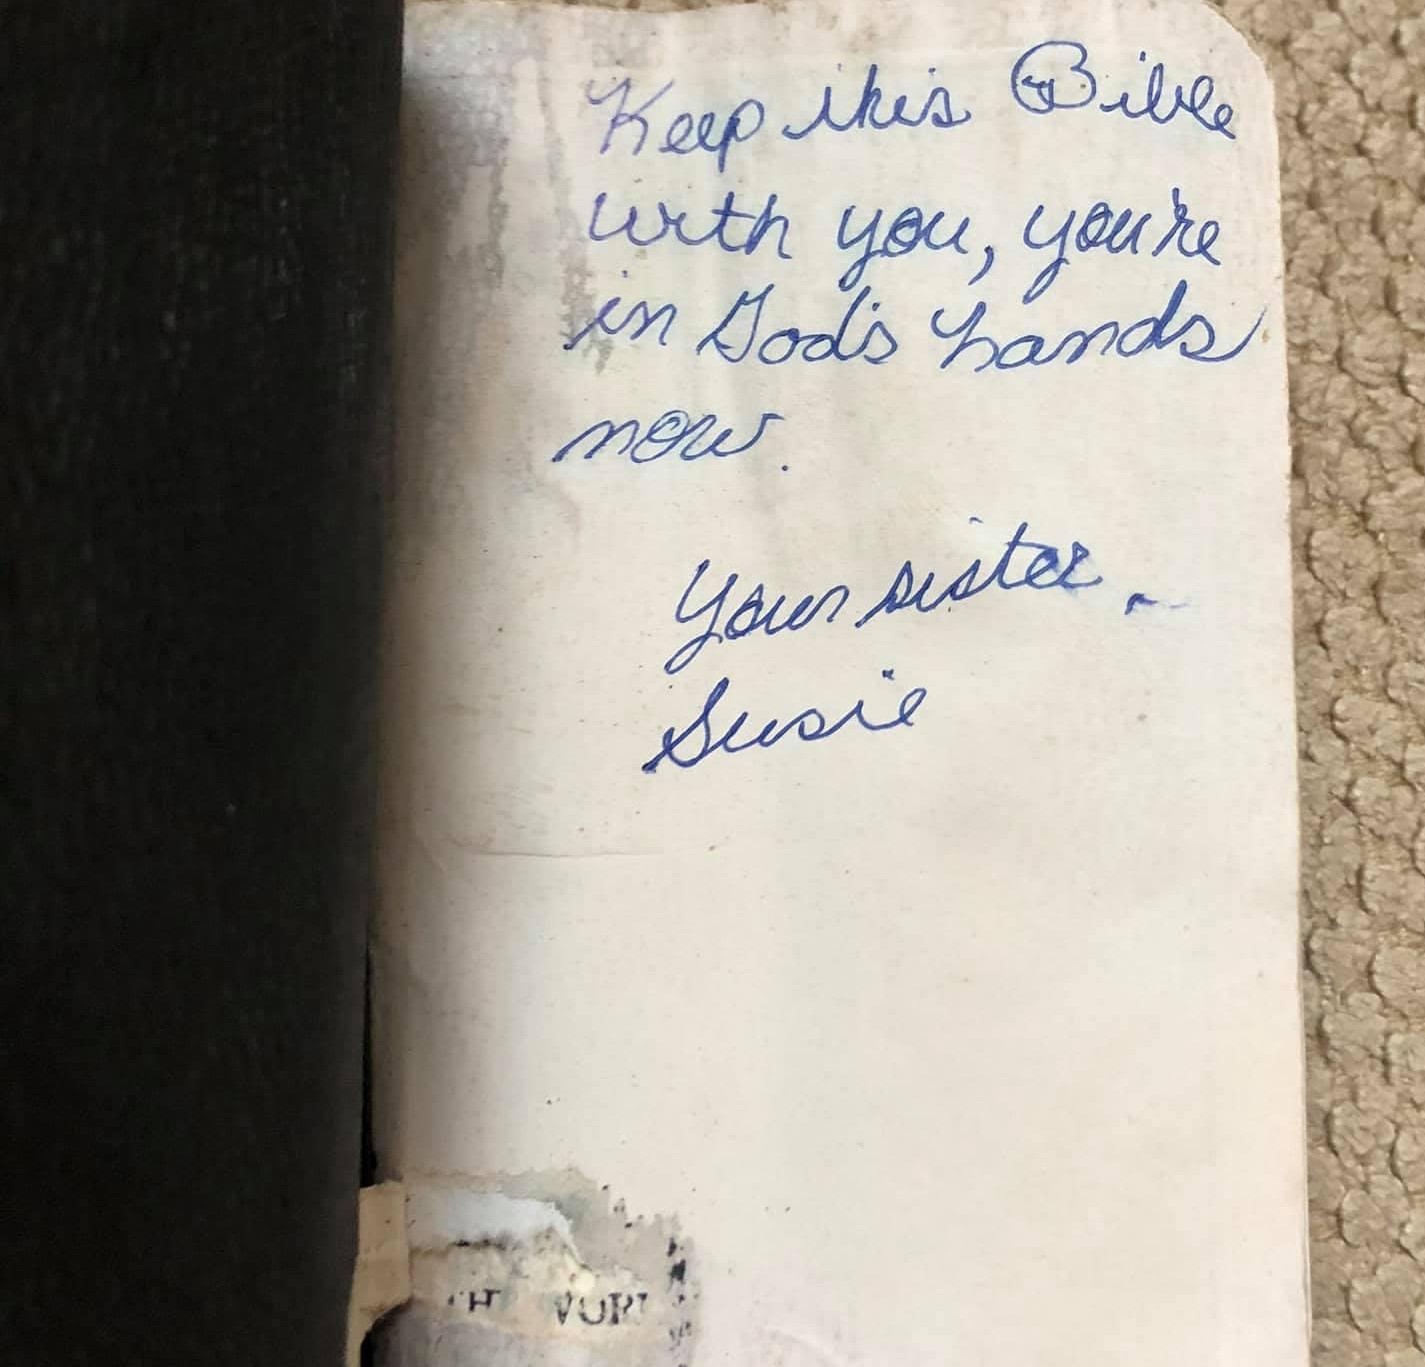 Keep this Bible
with you, you're
in God's hands
now.
Your sister,
Susie